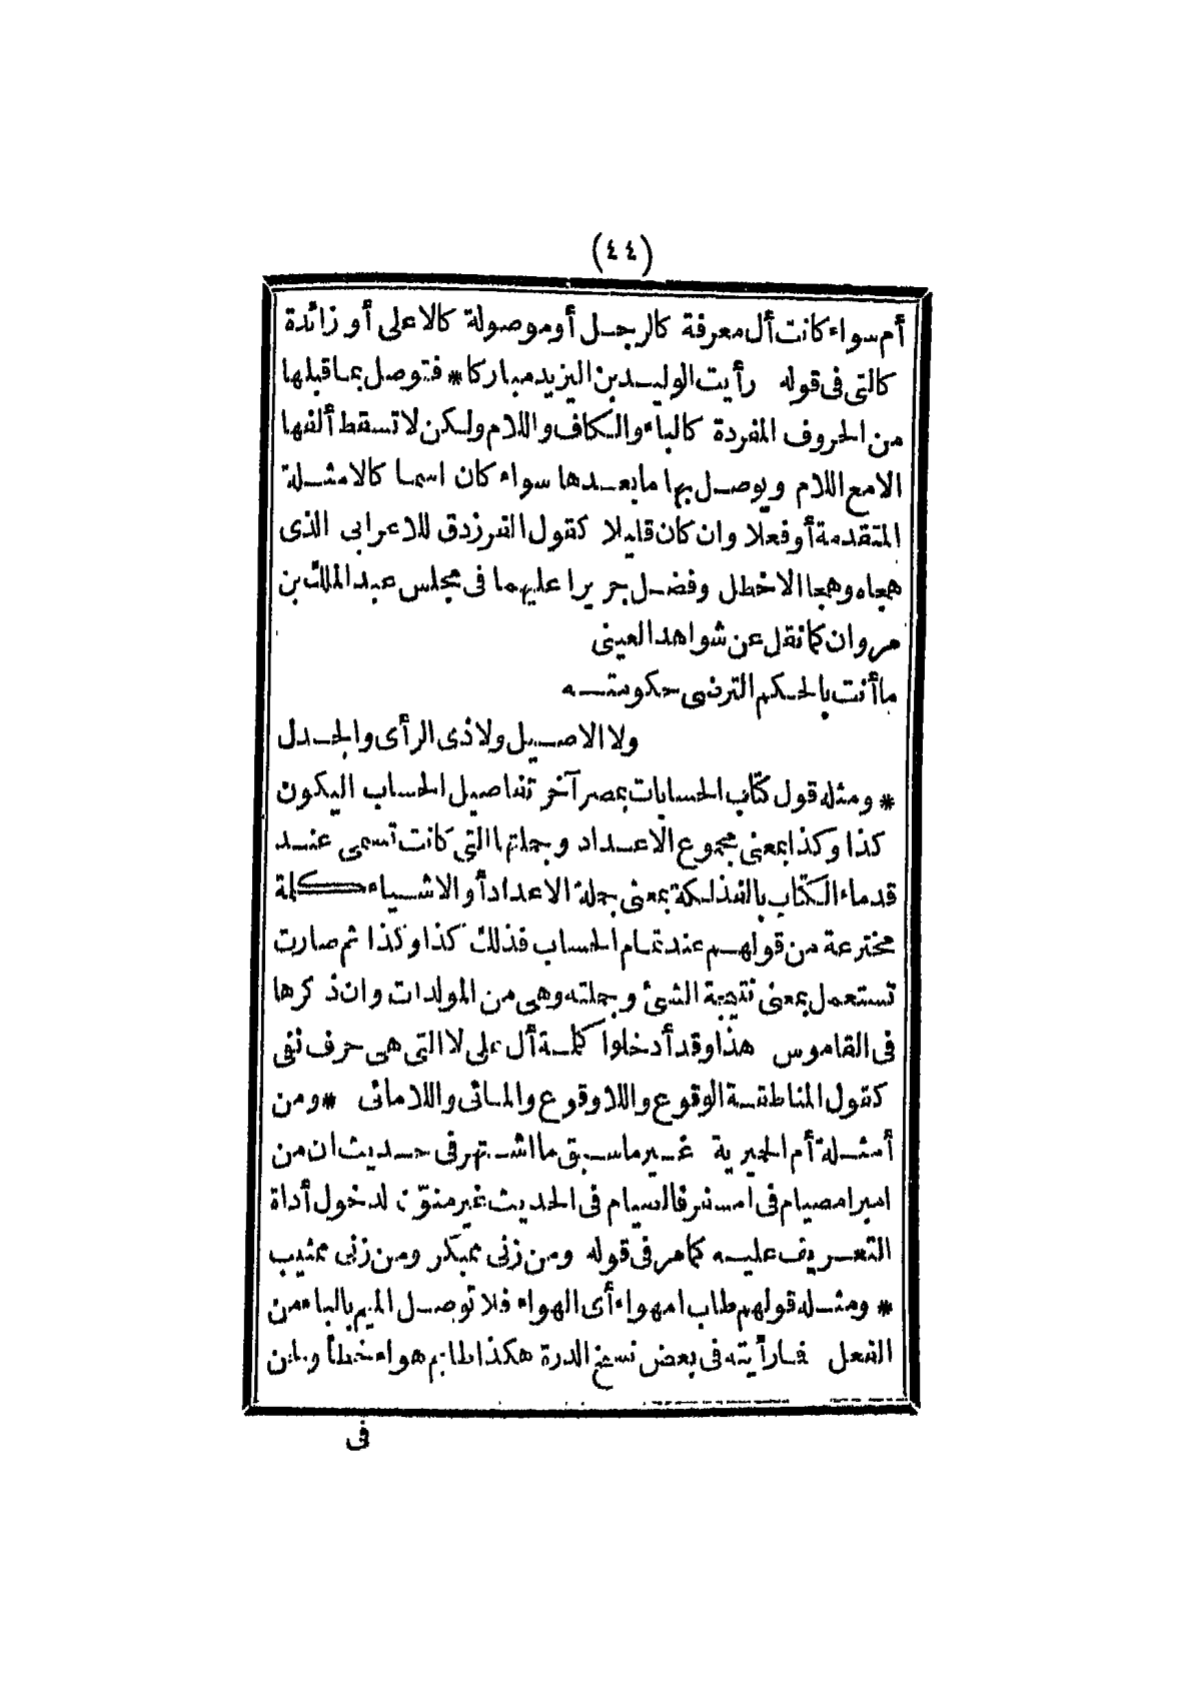 (٤٤)
أم سواء كانت أل معرفة كالرجل أو موصولة كالاعلى أو زائدة
كالتى فى قوله رأيت الوليد بن اليزيد مباركا * فتوصل بما قبلها
من الحروف المفردة كالباء والكاف واللام ولكن لا تسقط ألفها
الا مع اللام ويوصل بها ما بعدها سواء كان اسما كالامثلة
المتقدمة أو فعلا وان كان قليلا كقول الفرزدق للاعرابى الذى
هجاه وهجا الاخطل وفضل جريرا عليهما فى مجلس عبد الملك بن
مروان كما نقل عن شواهد العينى
ما أنت بالحكم الترضى حكومته
ولا الاصيل ولا ذى الرأى والجدل
* ومثله قول كتّاب الحسابات بمصر آخر تفاصيل الحساب اليكون
كذا وكذا بمعنى مجموع الاعداد وجملتها التى كانت تسمى عند
قدماء الكتّاب بالفذلكة بمعنى جملة الاعداد أو الاشياء كلمة
مخترعة من قولهم عند تمام الحساب فذلك كذا وكذا ثم صارت
تستعمل بمعنى نتيجة الشئ وجملته وهى من المولدات وان ذكرها
فى القاموس هذا وقد أدخلوا كلمة أل على لا التى هى حرف نفى
كقول المناطقة الوقوع واللاوقوع والمائى واللامائى * ومن
أمثلة أم الحميرية غير ما سبق ما اشتهر فى حديث ان من
امبر امصيام فى امسفر فالصيام فى الحديث غير منوّن لدخول أداة
التعريف عليه كما مر فى قوله ومن زنى ممبكر ومن زنى ممثيب
* ومثله قولهم طاب امهواء أى الهواء فلا توصل الميم بالباء من
الفعل فما رأيته فى بعض نسخ الدرة هكذا طابم هواء خطأ
فى